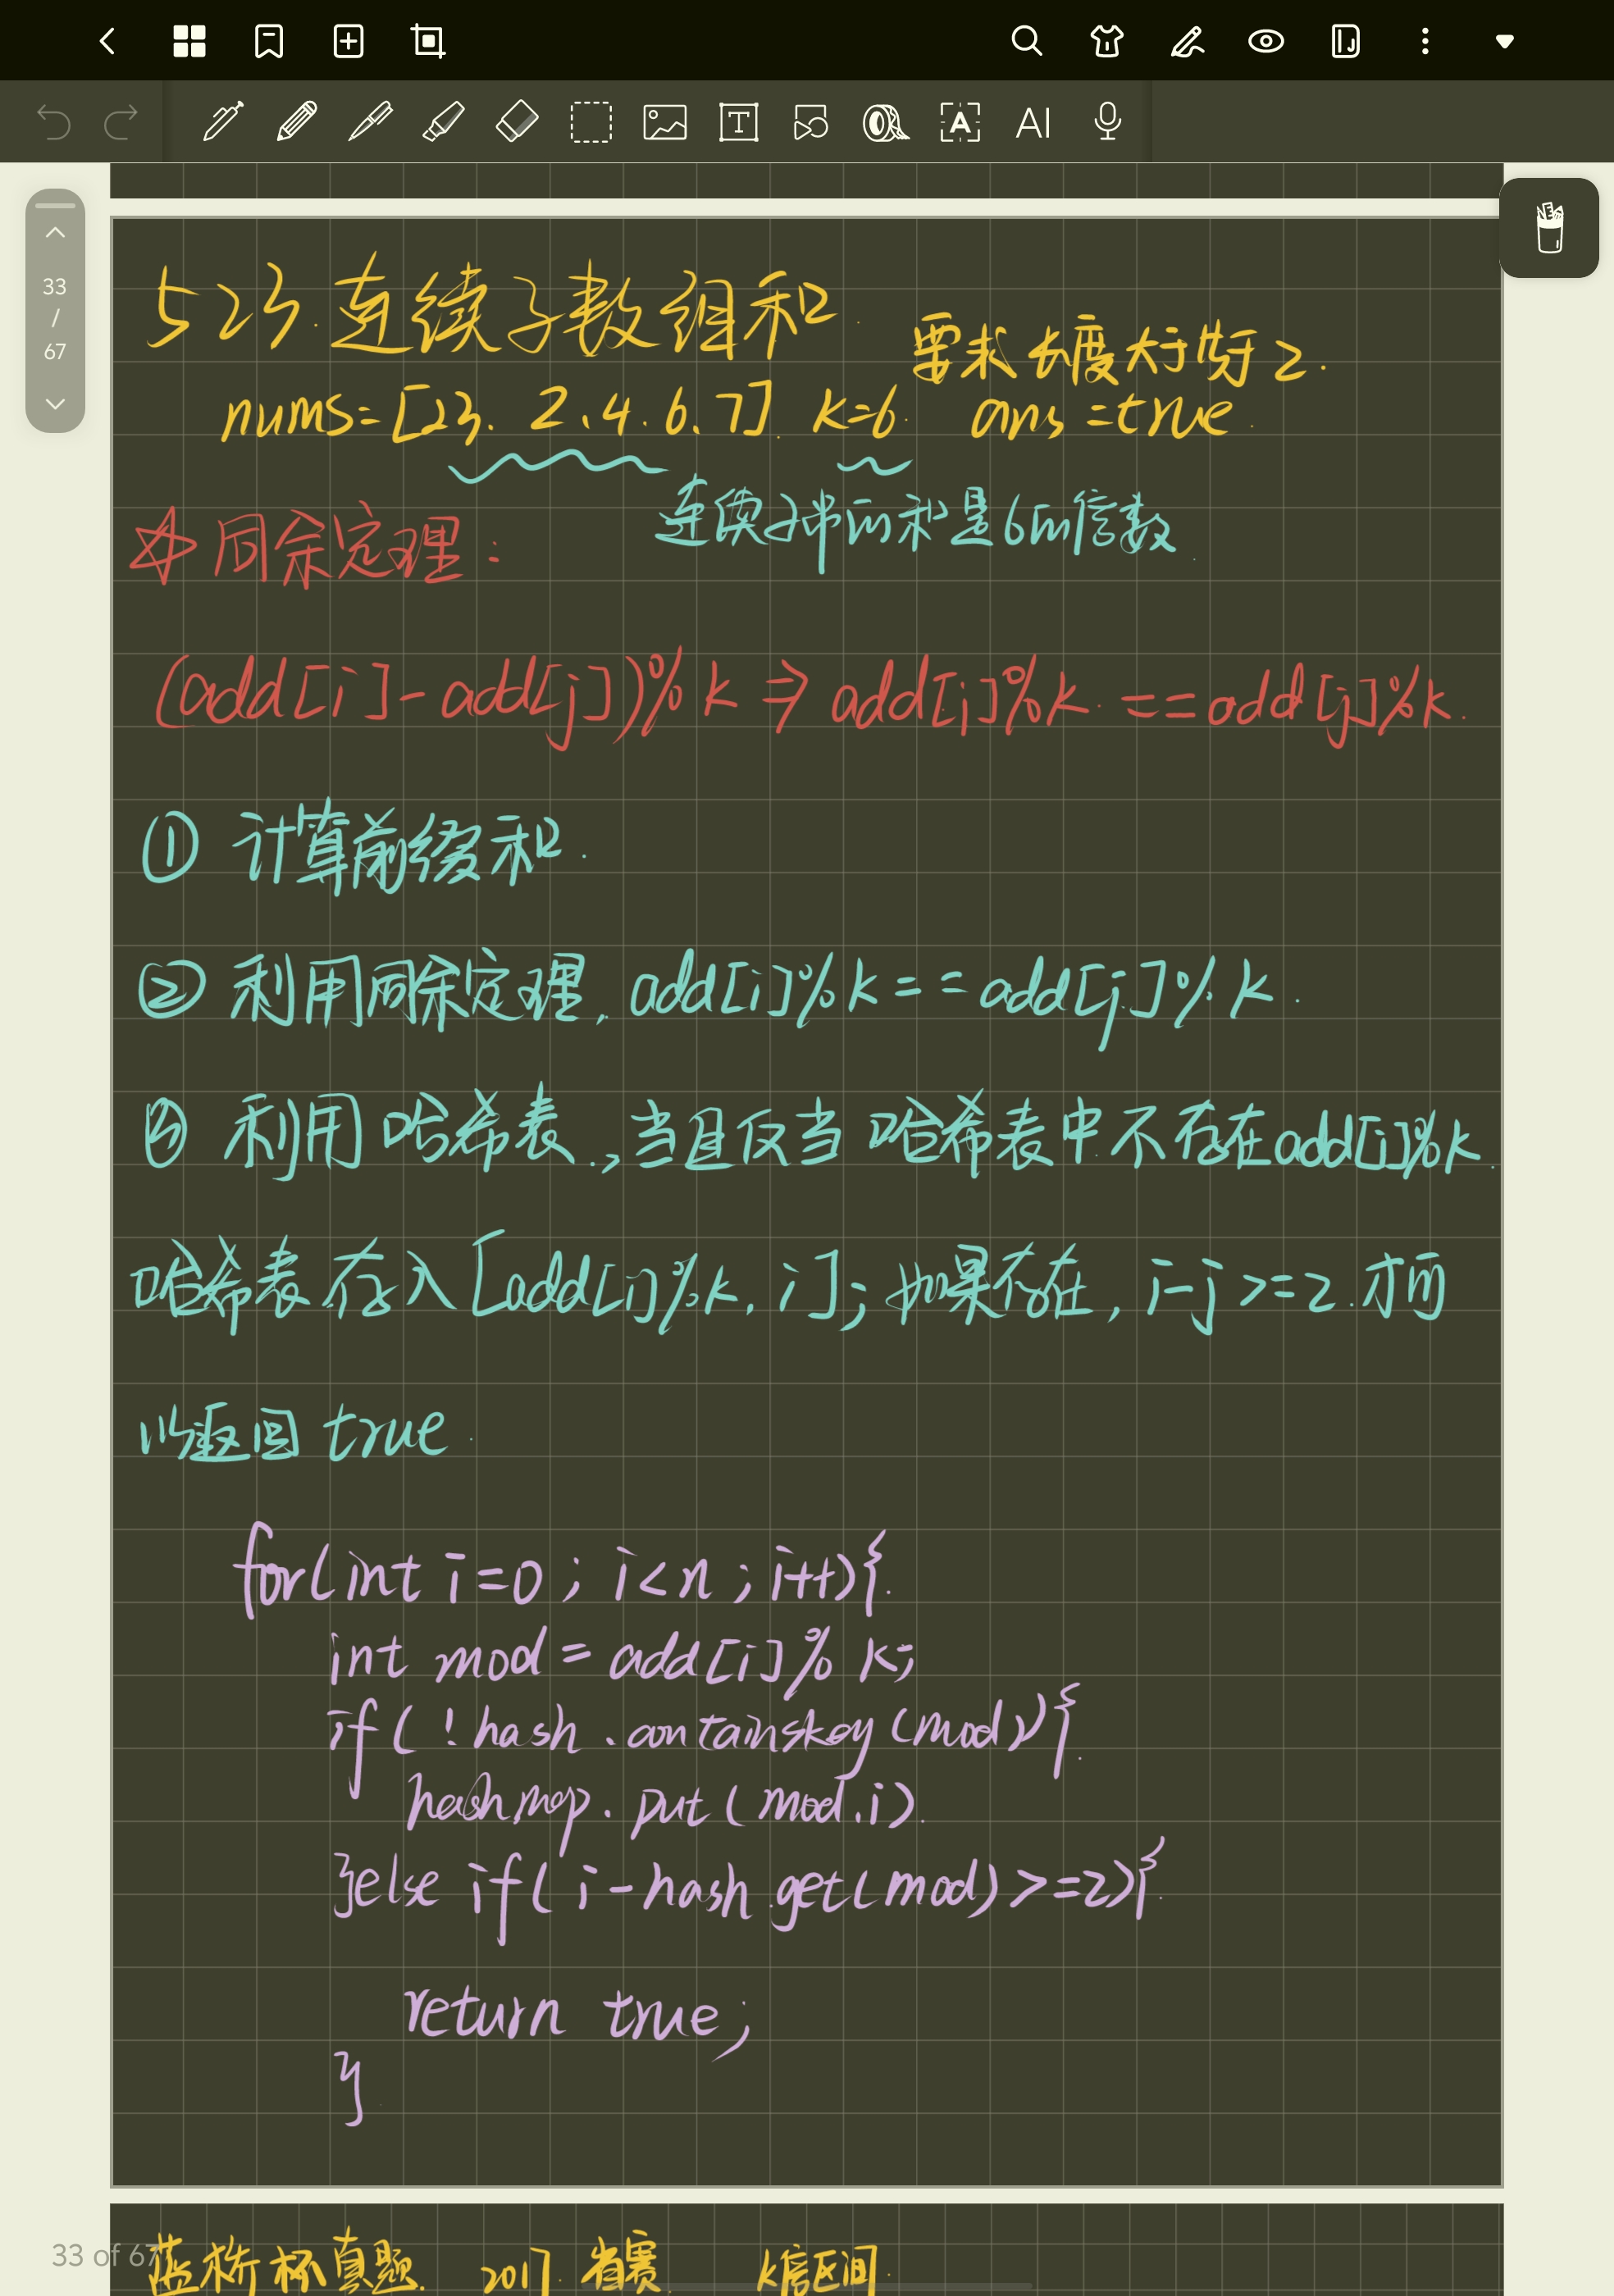 AI
33
/
67
523.连续子数组和
要求长度大于等于2.
nums=[23.2.4.6.7] k=6. ans=true.
连续子串的和是6的倍数
同余定理:
(add[i]-add[j])%k⇒add[i]%k==add[j]%k.
① 计算前缀和.
② 利用同余定理,add[i]%k==add[j]%k.
③ 利用哈希表.,当且仅当哈希表中不存在add[i]%k.
哈希表存入[add[i]%k,i];如果存在,i-j>=2.才可
以返回true.
for(int i=0;i<n;i++){
int mod=add[i]%k;
if(!hash.containskey(mod)){
hashmap.put(mod,i).
}else if(i-hash.get(mod)>=2){
return true;
}
33 of 67
蓝桥杯真题. 2017.省赛. k倍区间.